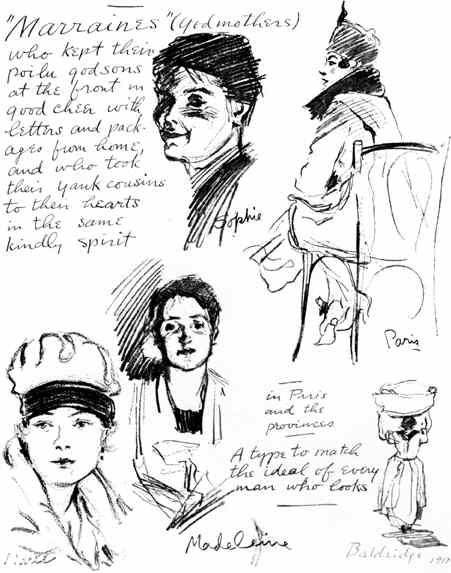 "Marraines" (godmothers)
who kept their
poilu godsons
at the front in
good cheer with
letters and pack-
ages from home,
and who took
their Yank cousins
to their hearts
in the same
kindly spirit
Sophie
Paris
in Paris
and the
provinces
A type to match
the ideal of every
man who looks
Madeleine
Baldridge 1917